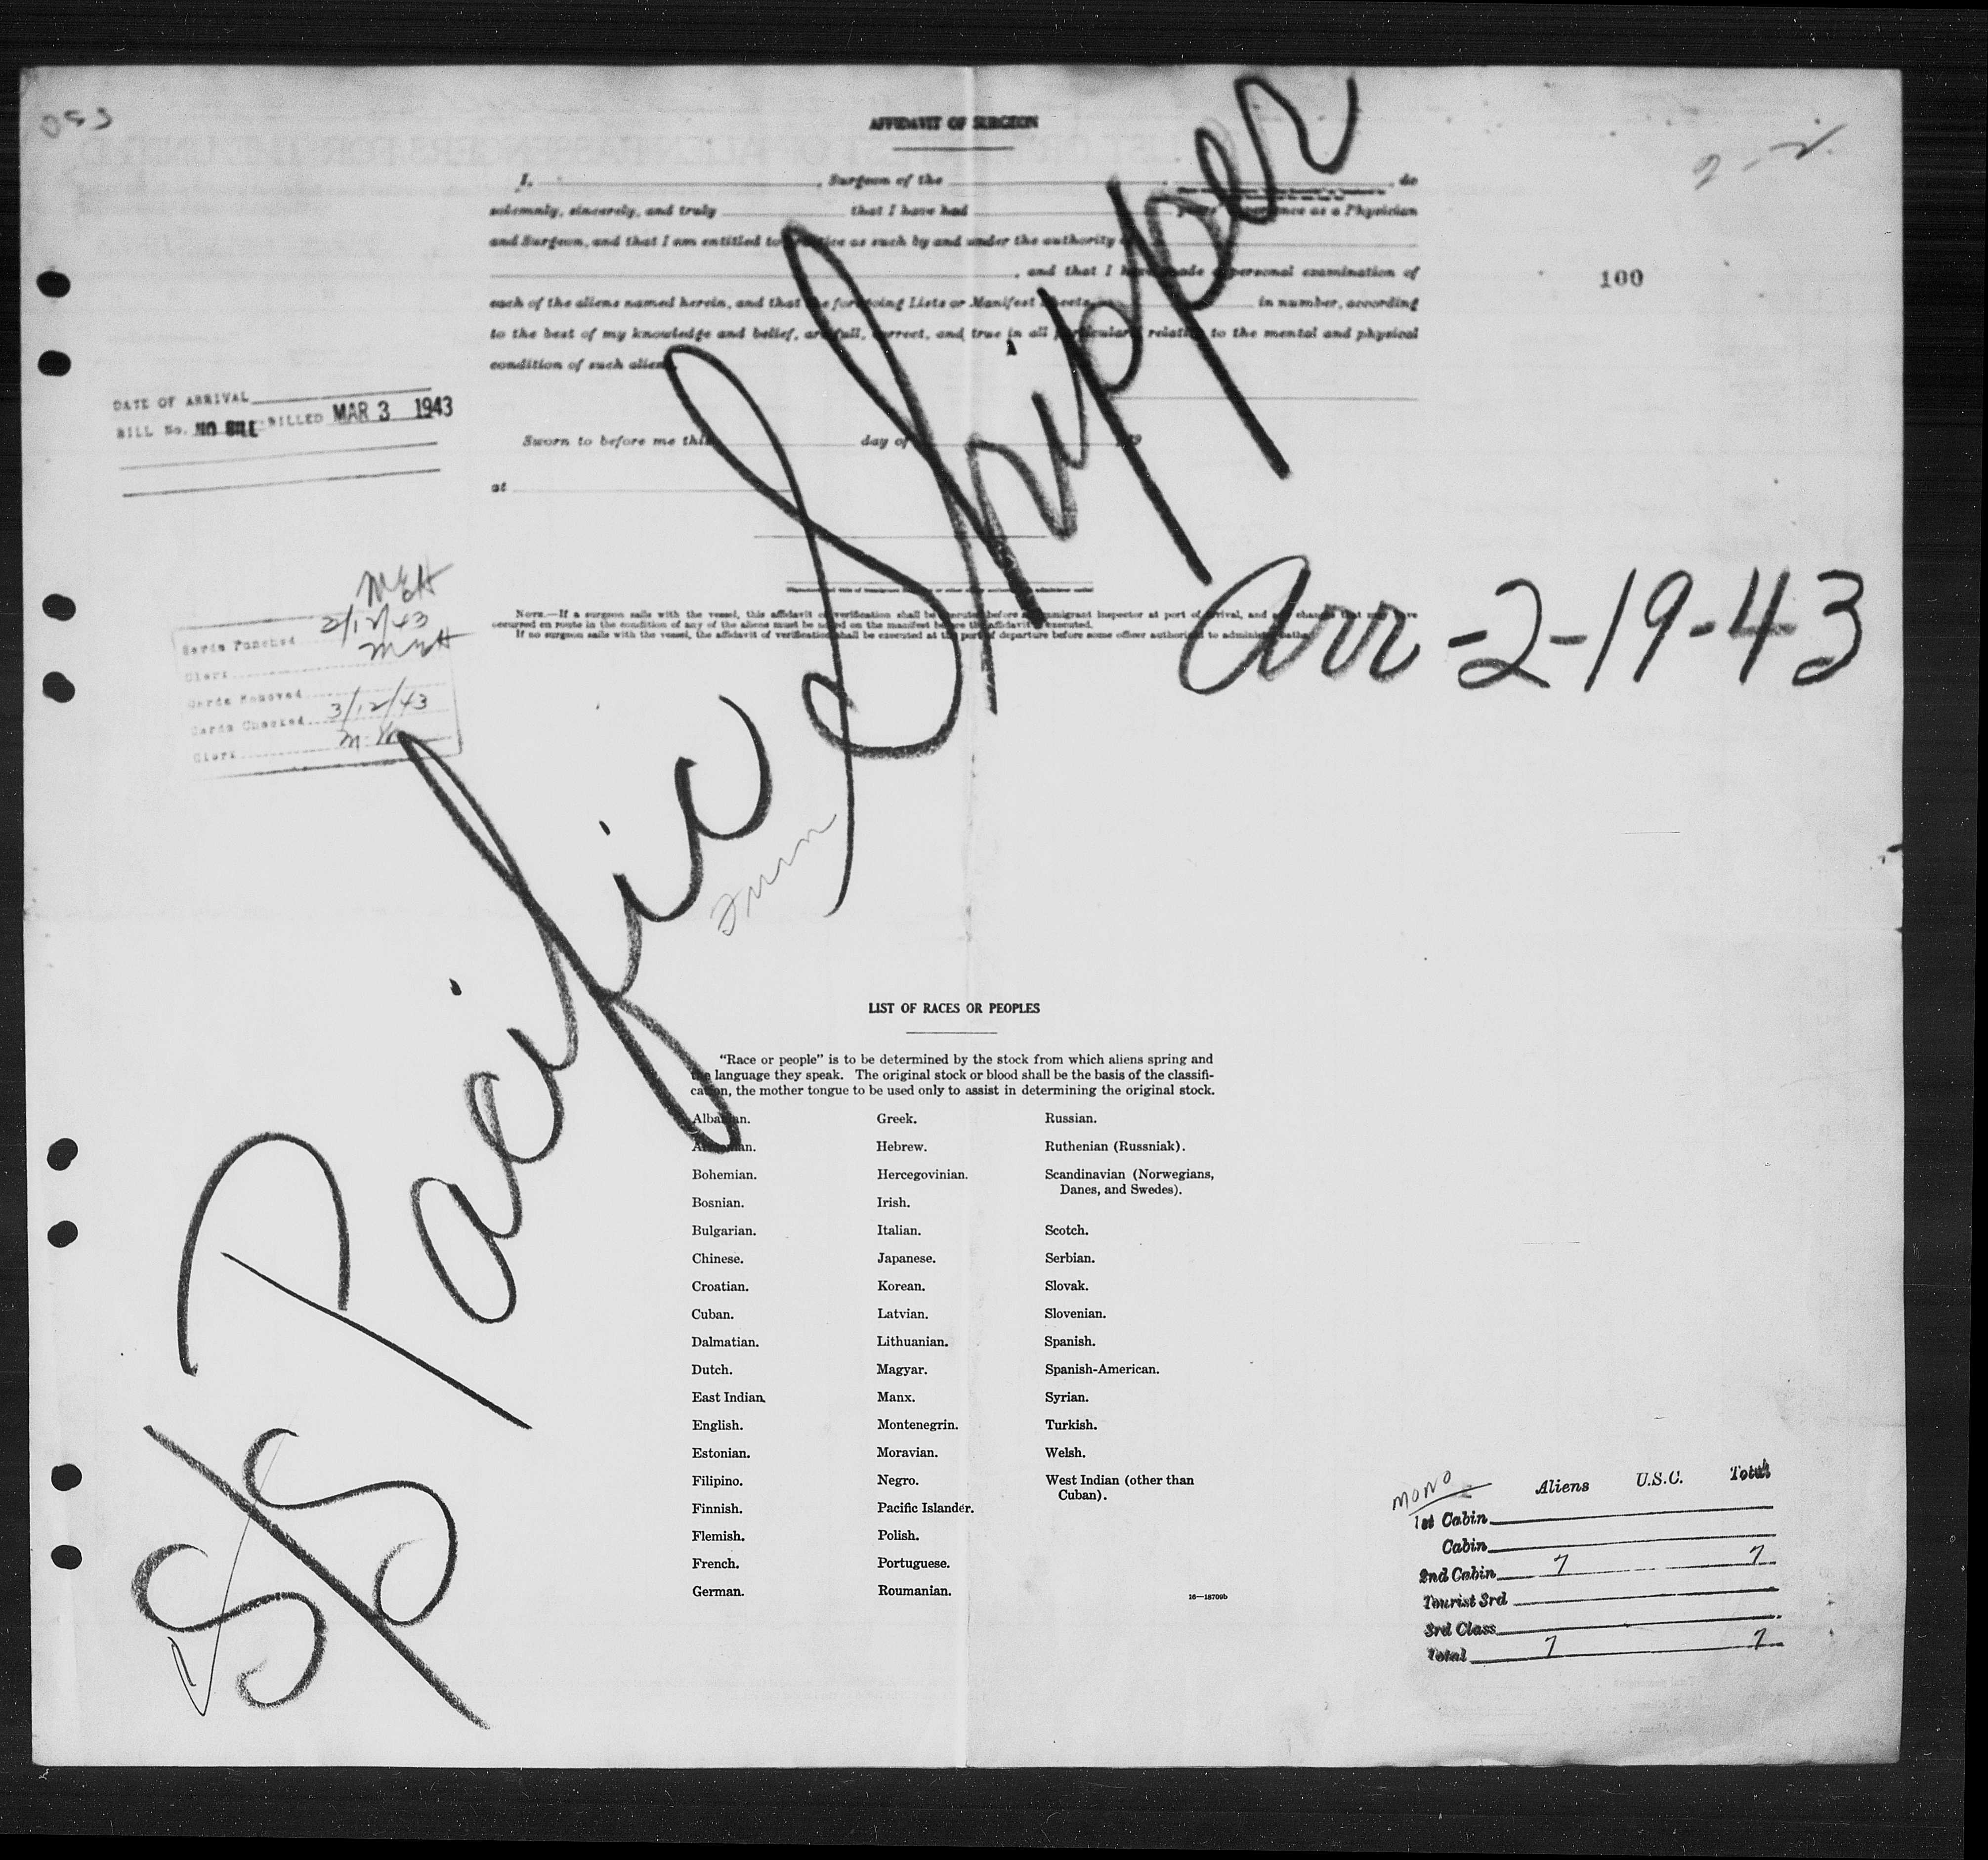 AFFIDAVIT OF SURGEON
I, , Surgeon of the , do
solemnly, sincerely, and truly that I have had years' experience as a Physician
and Surgeon, and that I am entitled to practice as such by and under the authority of
, and that I have made a personal examination of
each of the aliens named herein, and that the foregoing Lists or Manifest Sheets, in number, according
to the best of my knowledge and belief, are full, correct, and true in all particulars relative to the mental and physical
condition of such aliens.
100
DATE OF ARRIVAL
BILL No. NO BILL BILLED MAR 3 1943
Sworn to before me this day of , 19
at
NOTE.—If a surgeon sails with the vessel, this affidavit of verification shall be executed before an immigrant inspector at port of arrival, and any changes that may have
occurred en route in the condition of any of the aliens must be noted on the manifest before the affidavit is executed.
If no surgeon sails with the vessel, the affidavit of verification shall be executed at the port of departure before some officer authorized to administer oaths.
MEH
Cards Punched 3/12/43
Clerk MEH
Cards Removed
Cards Checked 3/12/43
Clerk
S/S Pacific Shipper
Arr-2-19-43
LIST OF RACES OR PEOPLES
"Race or people" is to be determined by the stock from which aliens spring and
the language they speak. The original stock or blood shall be the basis of the classifi-
cation, the mother tongue to be used only to assist in determining the original stock.
Albanian. Greek. Russian.
Armenian. Hebrew. Ruthenian (Russniak).
Bohemian. Hercegovinian. Scandinavian (Norwegians,
Danes, and Swedes).
Bosnian. Irish.
Bulgarian. Italian. Scotch.
Chinese. Japanese. Serbian.
Croatian. Korean. Slovak.
Cuban. Latvian. Slovenian.
Dalmatian. Lithuanian. Spanish.
Dutch. Magyar. Spanish-American.
East Indian. Manx. Syrian.
English. Montenegrin. Turkish.
Estonian. Moravian. Welsh.
Filipino. Negro. West Indian (other than
Cuban).
Finnish. Pacific Islander.
Flemish. Polish.
French. Portuguese.
German. Roumanian.
16—18709b
MONO
Aliens U.S.C. Total
1st Cabin
Cabin
2nd Cabin 7 7
Tourist 3rd
3rd Class
Total 7 7